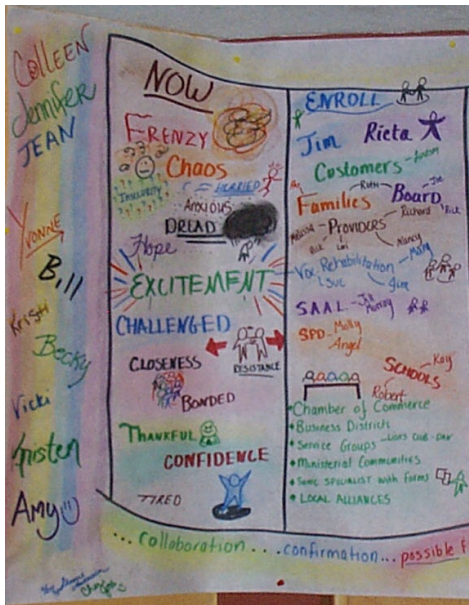 Colleen
Jennifer
JEAN
YVONNE
Bill
Kristi
Becky
Vicki
Kristen
Amy
NOW
FRENZY
Chaos
INSECURITY
HURRIED
Anxious
DREAD
Hope
EXCITEMENT
CHALLENGED
RESISTANCE
CLOSENESS
BONDED
THANKFUL
CONFIDENCE
TIRED
ENROLL
Jim Rieta
Customers
Families Ruth Board Joe
Richard Bill
Melissa Providers
Bill Lori Nancy
Voc Rehabilitation Mary
LSUC Jim
SAAL Jill Murray
SPD Molly
Angel
SCHOOLS Kay
Robert
Chamber of Commerce
Business Districts
Service Groups
Ministerial Communities
Some SPECIALIST with Forms
LOCAL ALLIANCES
... collaboration .... confirmation ... possible f